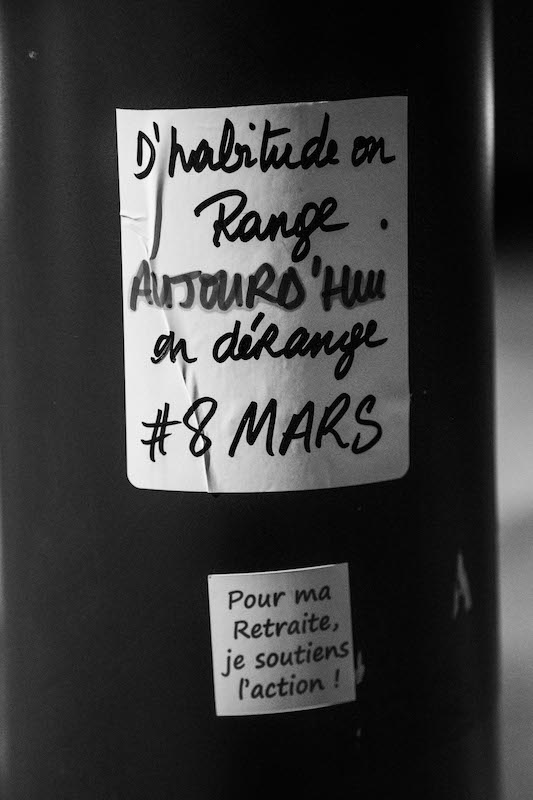 D'habitude on
Range.
AUJOURD'HUI
on dérange
#8 MARS
Pour ma
Retraite,
je soutiens
l'action !